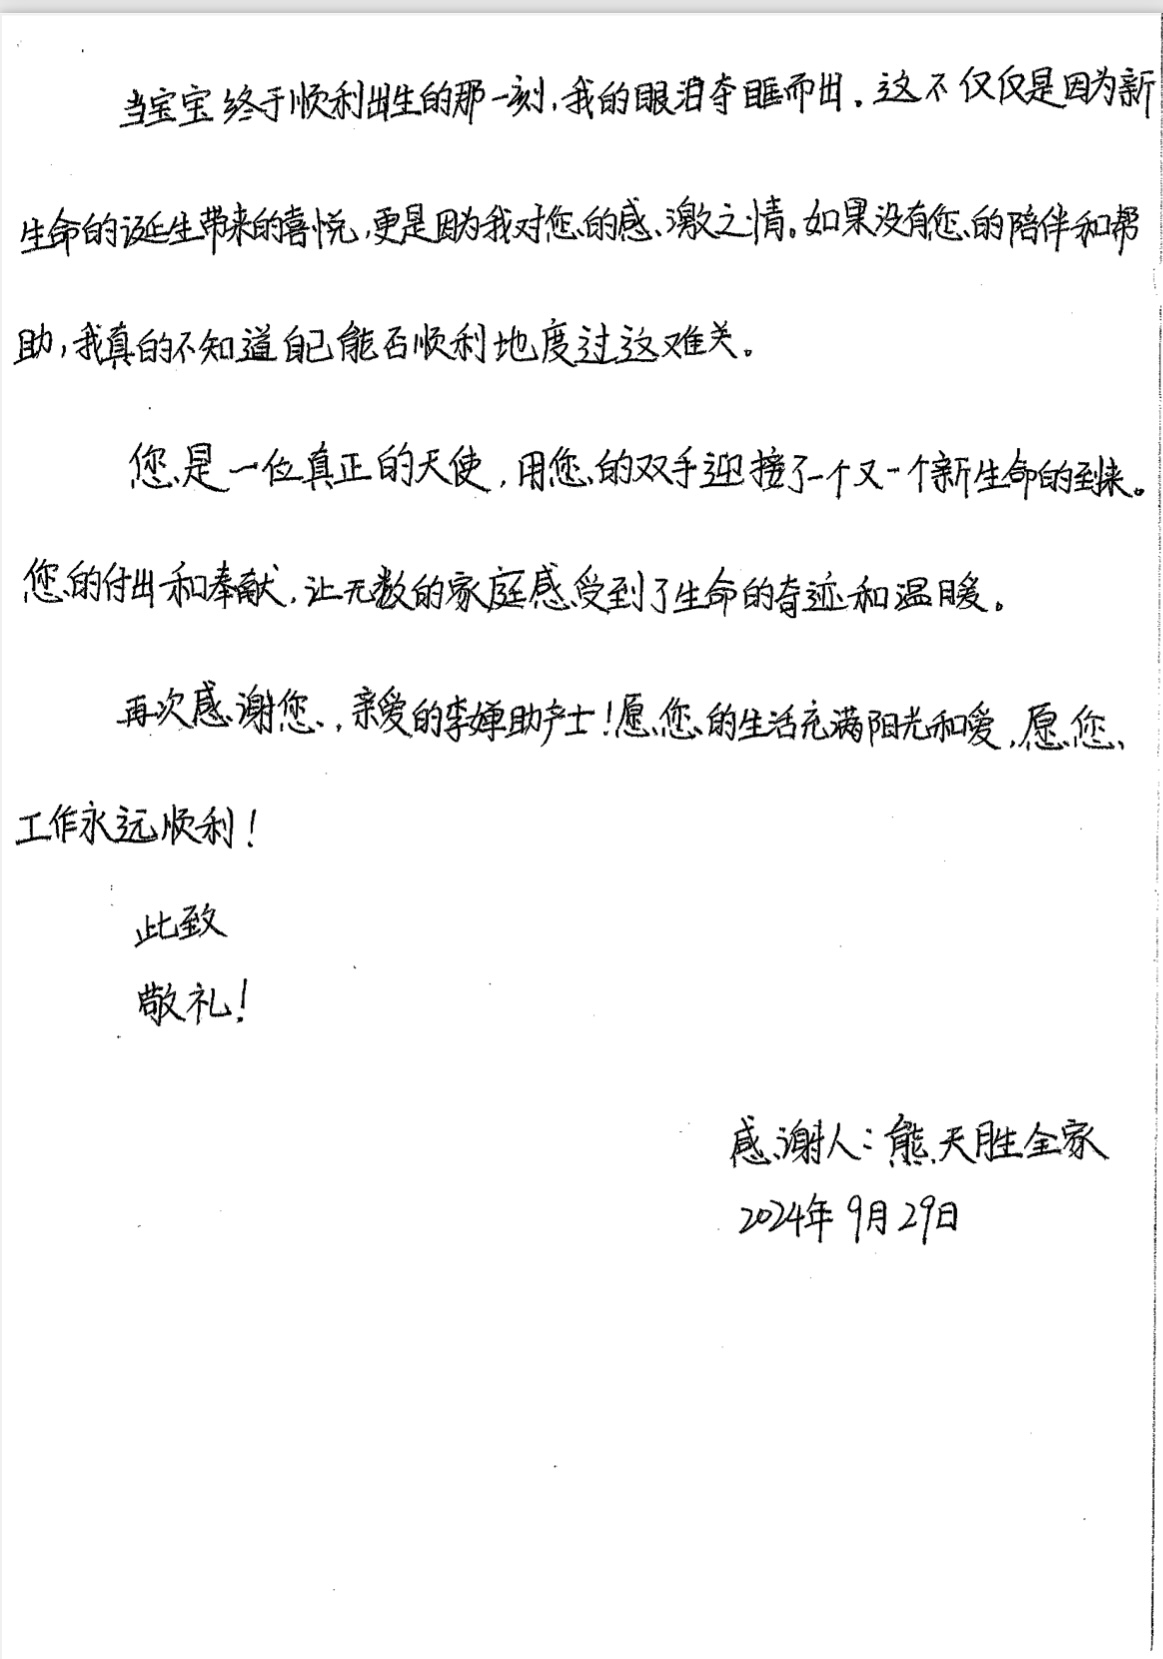 当宝宝终于顺利出生的那一刻，我的眼泪夺眶而出。这不仅仅是因为新
生命的诞生带来的喜悦，更是因为我对您的感激之情。如果没有您的陪伴和帮
助，我真的不知道自己能否顺利地度过这难关。
您是一位真正的天使，用您的双手迎接了一个又一个新生命的到来。
您的付出和奉献，让无数的家庭感受到了生命的奇迹和温暖。
再次感谢您，亲爱的李婵助产士！愿您的生活充满阳光和爱，愿您
工作永远顺利！
此致
敬礼！
感谢人：熊天胜全家
2024年9月29日